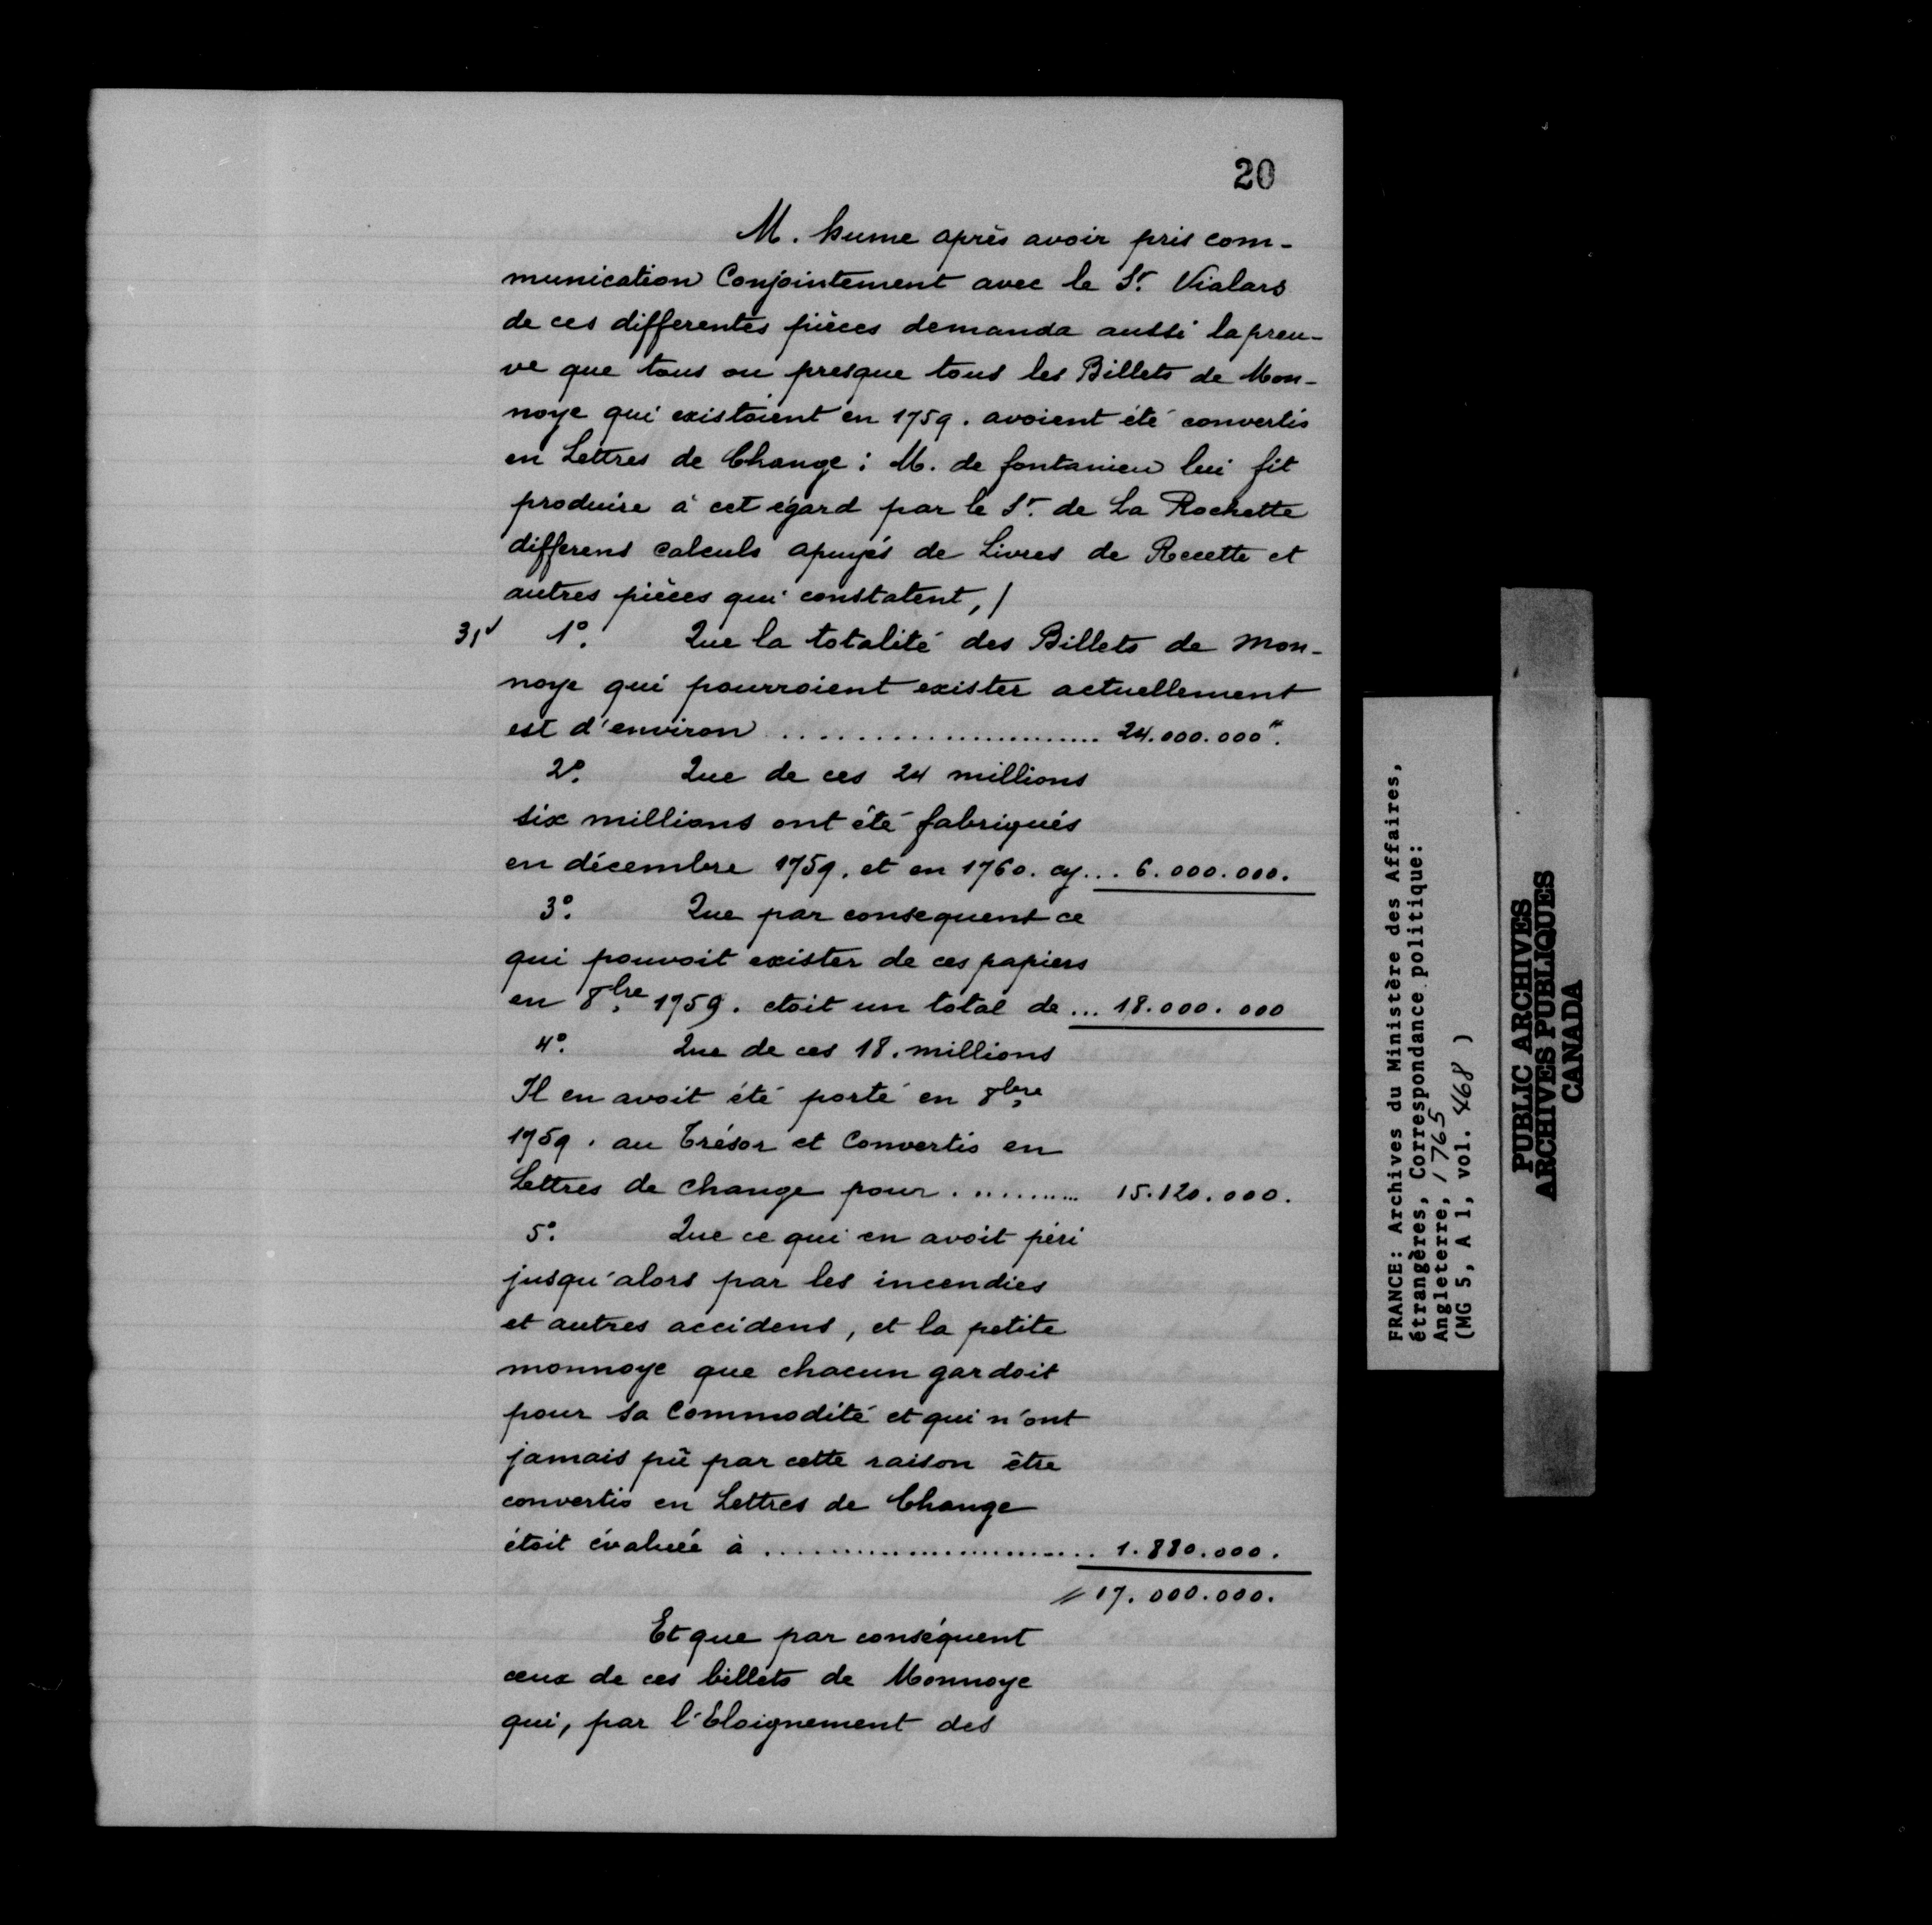 20
M. hume après avoir pris com-
munication Conjointement avec le Sr. Vialars
de ces differentes pièces demanda aussi la preu-
ve que tous ou presque tous les Billets de Mon-
noye qui existoient en 1759. avoient été convertis
en Lettres de Change: M. de fontanieu lui fit
produire à cet égard par le Sr. de La Rochette
differens calculs apuyés de Livres de Recette et
autres pièces qui constatent, /
31v 1º. Que la totalité des Billets de Mon-
noye qui pourroient exister actuellement
est d'environ ........................ 24.000.000".
2º. Que de ces 24 millions
six millions ont été fabriqués
en décembre 1759. et en 1760. cy... 6.000.000.
3º. Que par consequent ce
qui pouvoit exister de ces papiers
en 8bre 1759. etoit un total de ... 18.000.000
4º. Que de ces 18. millions
Il en avoit été porté en 8bre
1759. au Trésor et Convertis en
Lettres de change pour .......... 15.120.000.
5º. Que ce qui en avoit péri
jusqu'alors par les incendies
et autres accidens, et la petite
monnoye que chacun gardoit
pour sa Commodité et qui n'ont
jamais pû par cette raison être
convertis en Lettres de Change
étoit évaluée à ........................ 1.880.000.
17.000.000.
Et que par conséquent
ceux de ces billets de Monnoye
qui, par l'Eloignement des
FRANCE: Archives du Ministère des Affaires,
étrangères, Correspondance politique:
Angleterre, 1765
(MG 5, A 1, vol. 468 )
PUBLIC ARCHIVES
ARCHIVES PUBLIQUES
CANADA